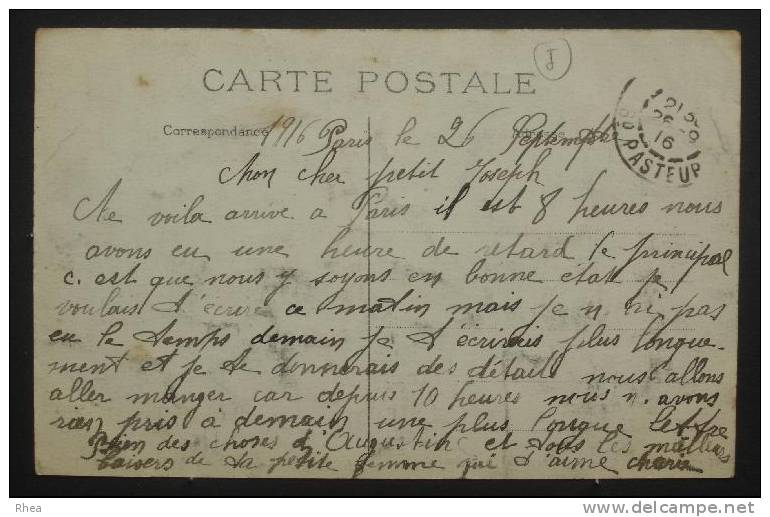 J
CARTE POSTALE
21 29
26-9
16
Bd PASTEUR
Correspondance
1916 Paris le 26 Septembre
Mon cher petit Joseph
Me voila arrive a Paris il est 8 heures nous
avons eu une heure de retard le principal
c. est que nous y soyons en bonne état je
voulais t'écrire ce matin mais je n ai pas
eu le temps demain je t'écrirais plus longue-
ment et je te donnerais des détails nous allons
aller manger car depuis 10 heures nous n. avons
rien pris à demain une plus longue lettre
Bien des choses d'Augustin et tous les meilleurs
baisers de ta petite femme qui t'aime
Rhea
delcampe.net